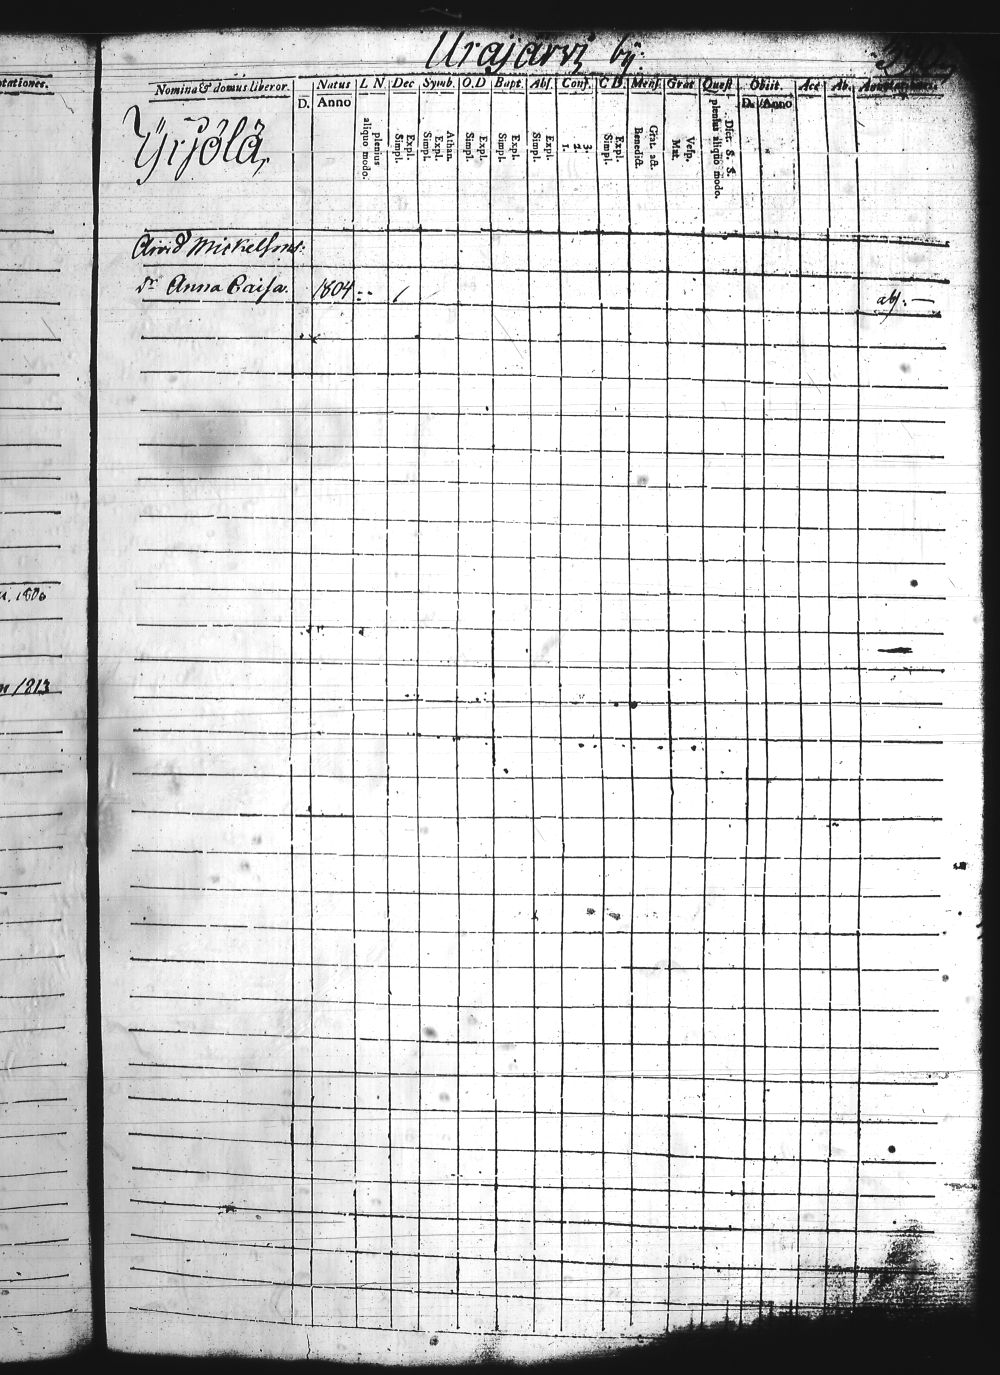 Urajärvi by:
tationes.
Nomina & domus liberor.
Natus
L N
Dec
Symb.
O.D
Bapt.
Abs.
Conf.
C D.
Mens.
Grat
Quest
Obiit.
Acc
Ab.
Annotationes.
D.
Anno
aliquo modo.
plenius
Simpl.
Expl.
Simpl.
Expl.
Athan.
Simpl.
Expl.
Simpl.
Expl.
Simpl.
Expl.
1.
2.
3.
Simpl.
Expl.
Benedict.
Grat. act.
Mat.
Vesp.
plenius aliquo modo.
Dict. S. S.
D.
Anno
Yrjölä,
Arvid Mickelsons.
dr Anna Caisa. 1804
1806
1813